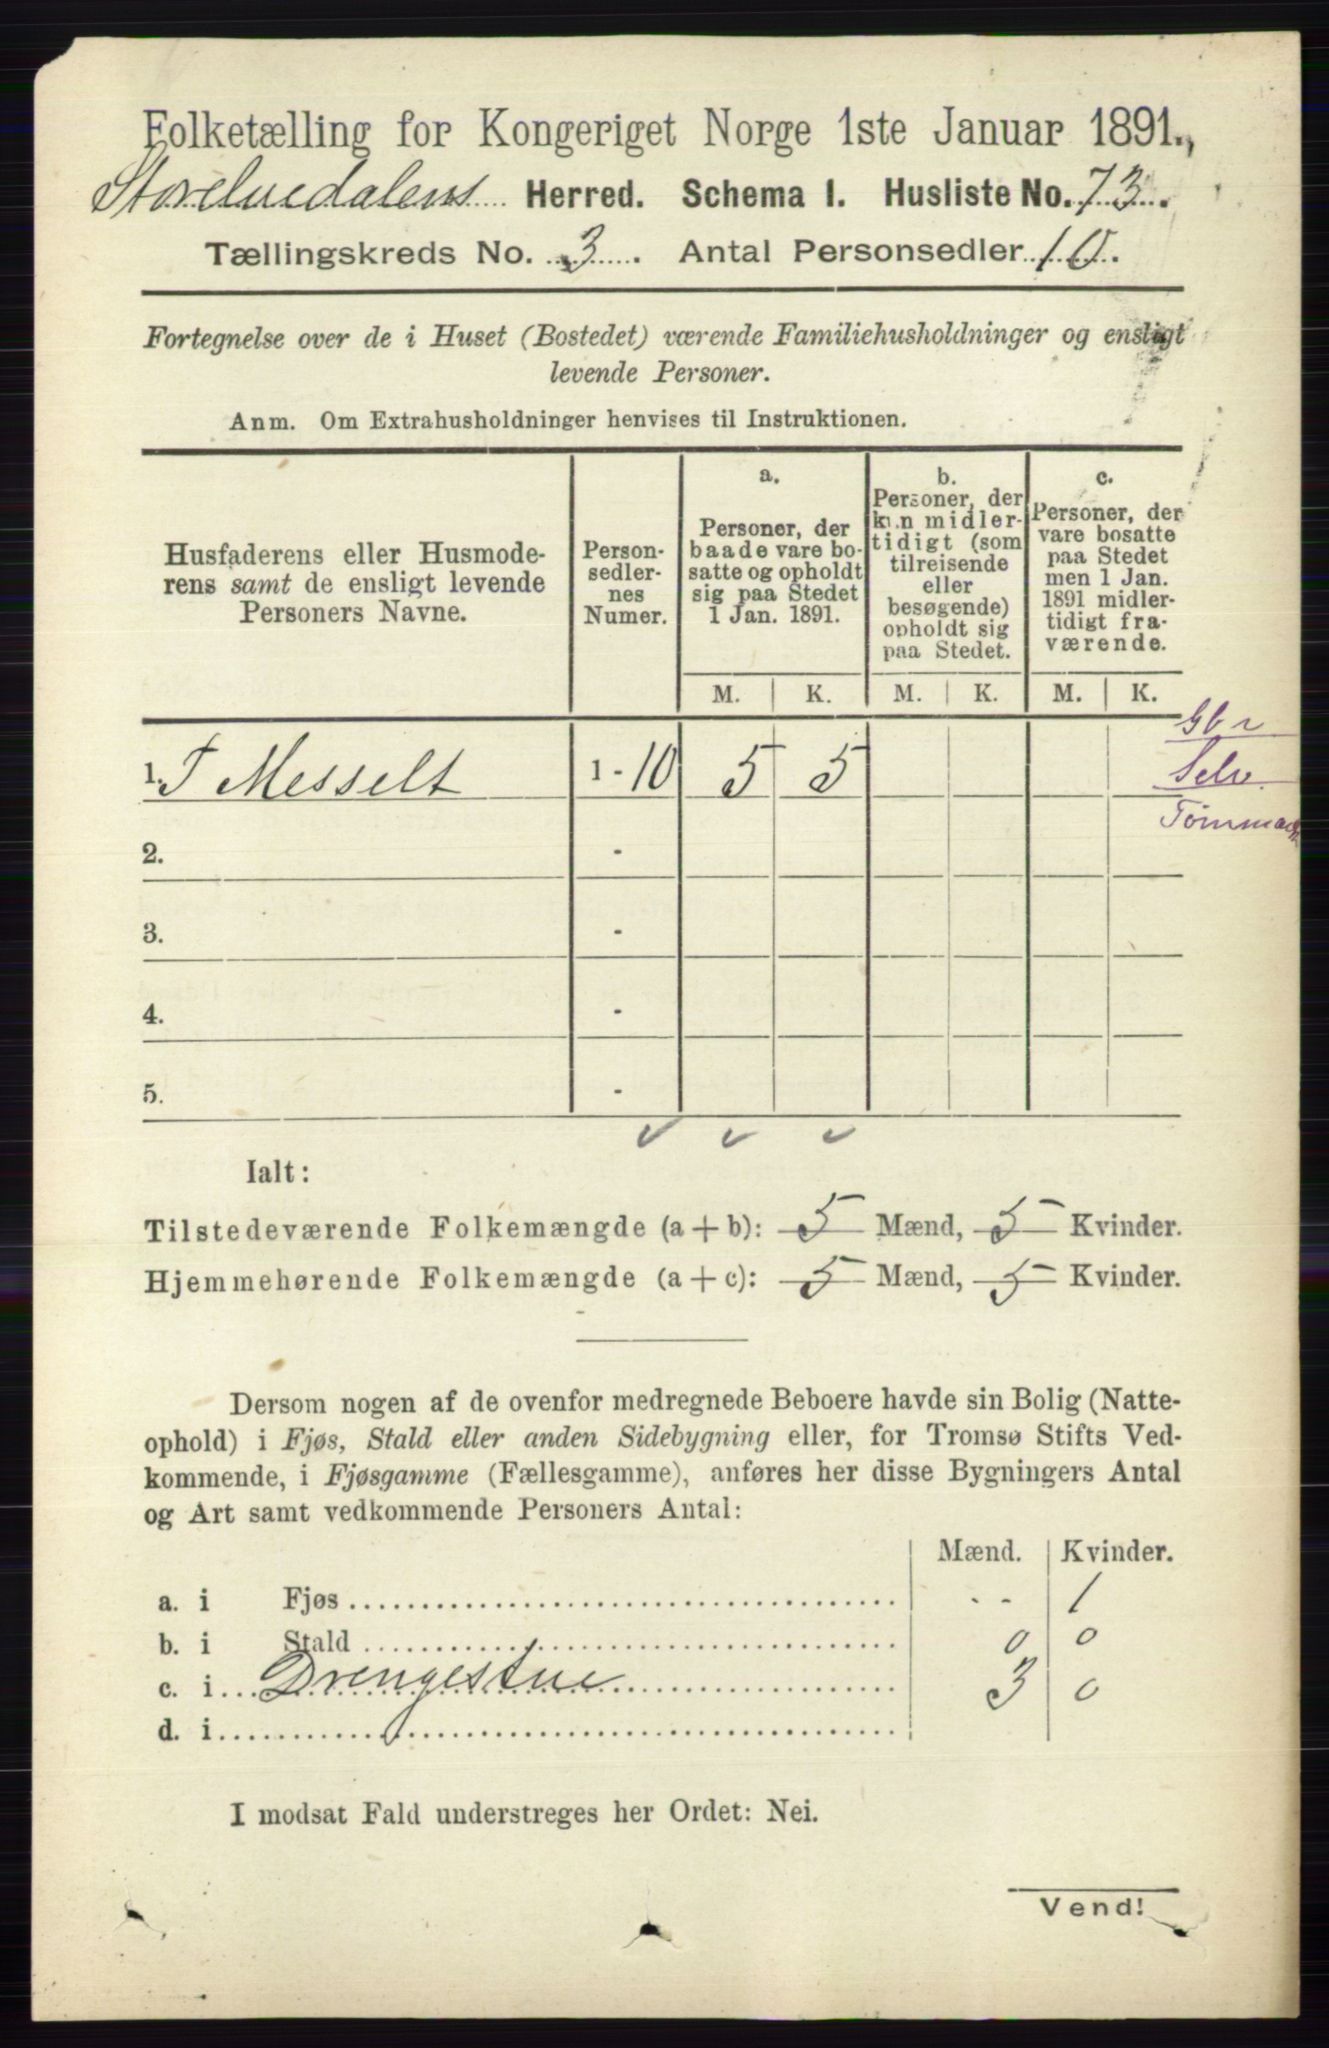 Folketælling for Kongeriget Norge 1ste Januar 1891.,
Storelvedalens Herred. Schema I. Husliste No. 73.
Tællingskreds No. 3. Antal Personsedler 10.
Fortegnelse over de i Huset (Bostedet) værende Familiehusholdninger og ensligt
levende Personer.
Anm. Om Extrahusholdninger henvises til Instruktionen.
Husfaderens eller Husmode-
rens samt de ensligt levende
Personers Navne.
Person-
sedler-
nes
Numer.
a.
Personer, der
baade vare bo-
satte og opholdt
sig paa Stedet
1 Jan. 1891.
b.
Personer, der
kun midler-
tidigt (som
tilreisende
eller
besøgende)
opholdt sig
paa Stedet.
c.
Personer, der
vare bosatte
paa Stedet
men 1 Jan.
1891 midler-
tidigt fra-
værende.
M. K. M. K. M. K.
Gbr
1. T Messelt 1 - 10 5 5 Selv
2. -
3. -
4. -
5. -
Ialt:
Tilstedeværende Folkemængde (a + b): 5 Mænd, 5 Kvinder.
Hjemmehørende Folkemængde (a + c): 5 Mænd, 5 Kvinder.
Dersom nogen af de ovenfor medregnede Beboere havde sin Bolig (Natte-
ophold) i Fjøs, Stald eller anden Sidebygning eller, for Tromsø Stifts Ved-
kommende, i Fjøsgamme (Fællesgamme), anføres her disse Bygningers Antal
og Art samt vedkommende Personers Antal:
Mænd. Kvinder.
a. i Fjøs - - 1
b. i Stald 0 0
c. i Drengestue 3 0
d. i
I modsat Fald understreges her Ordet: Nei.
Vend!